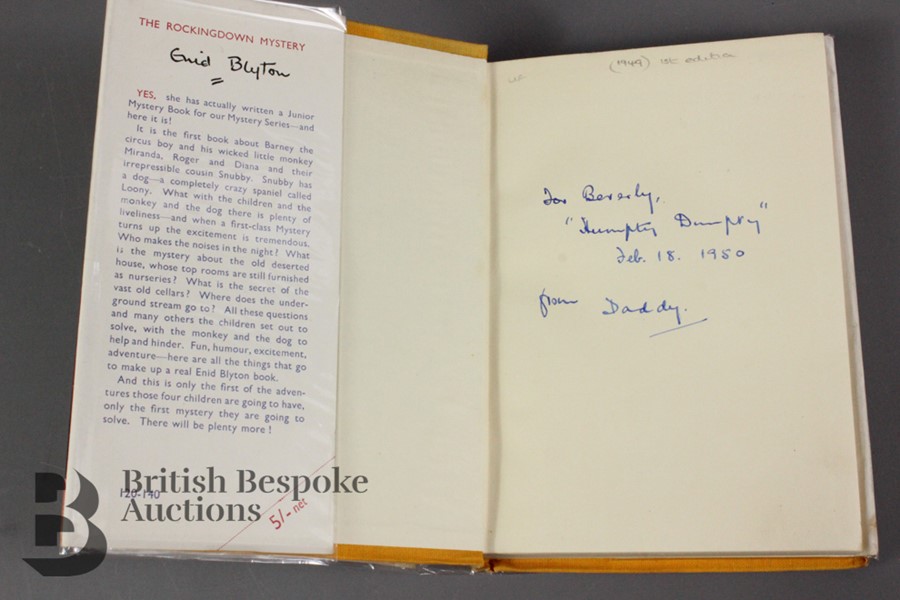 THE ROCKINGDOWN MYSTERY
Enid Blyton
YES, she has actually written a Junior
Mystery Book for our Mystery Series—and
here it is!
It is the first book about Barney the
circus boy and his wicked little monkey
Miranda, Roger and Diana and their
irrepressible cousin Snubby. Snubby has
a dog—a completely crazy spaniel called
Loony. What with the children and the
monkey and the dog there is plenty of
liveliness—and when a first-class Mystery
turns up the excitement is tremendous.
Who makes the noises in the night? What
is the mystery about the old deserted
house, whose top rooms are still furnished
as nurseries? What is the secret of the
vast old cellars? Where does the under-
ground stream go to? All these questions
and many others the children set out to
solve, with the monkey and the dog to
help and hinder. Fun, humour, excitement,
adventure—here are all the things that go
to make up a real Enid Blyton book.
And this is only the first of the adven-
tures those four children are going to have,
only the first mystery they are going to
solve. There will be plenty more!
120-140
5/- net
British Bespoke
Auctions
(1949) 1st edition
For Beverly,
"Humpty Dumpty"
Feb. 18. 1950
from Daddy.